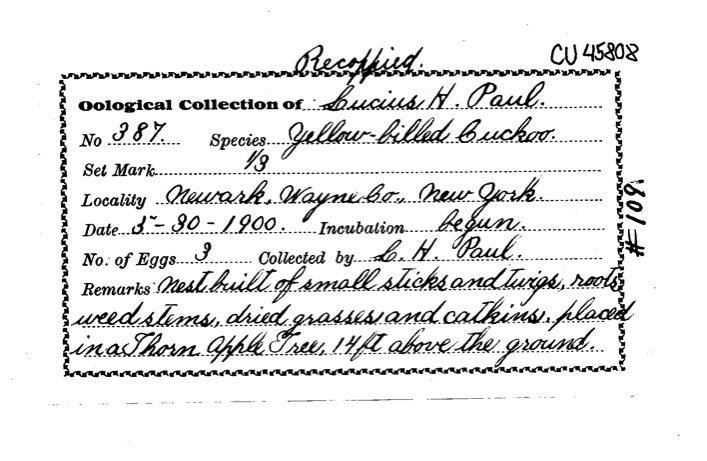 Recoppied.
CU 45808
Oological Collection of Lucius H. Paul.
No 387. Species Yellow-billed Cuckoo.
Set Mark 1/3
Locality Newark, Wayne Co., New York.
Date 5-30-1900. Incubation begun.
No. of Eggs 3 Collected by L. H. Paul.
Remarks Nest built of small sticks and twigs, roots
weed stems, dried grasses and catkins. placed
in a Thorn Apple Tree, 14 ft above the ground.
#109